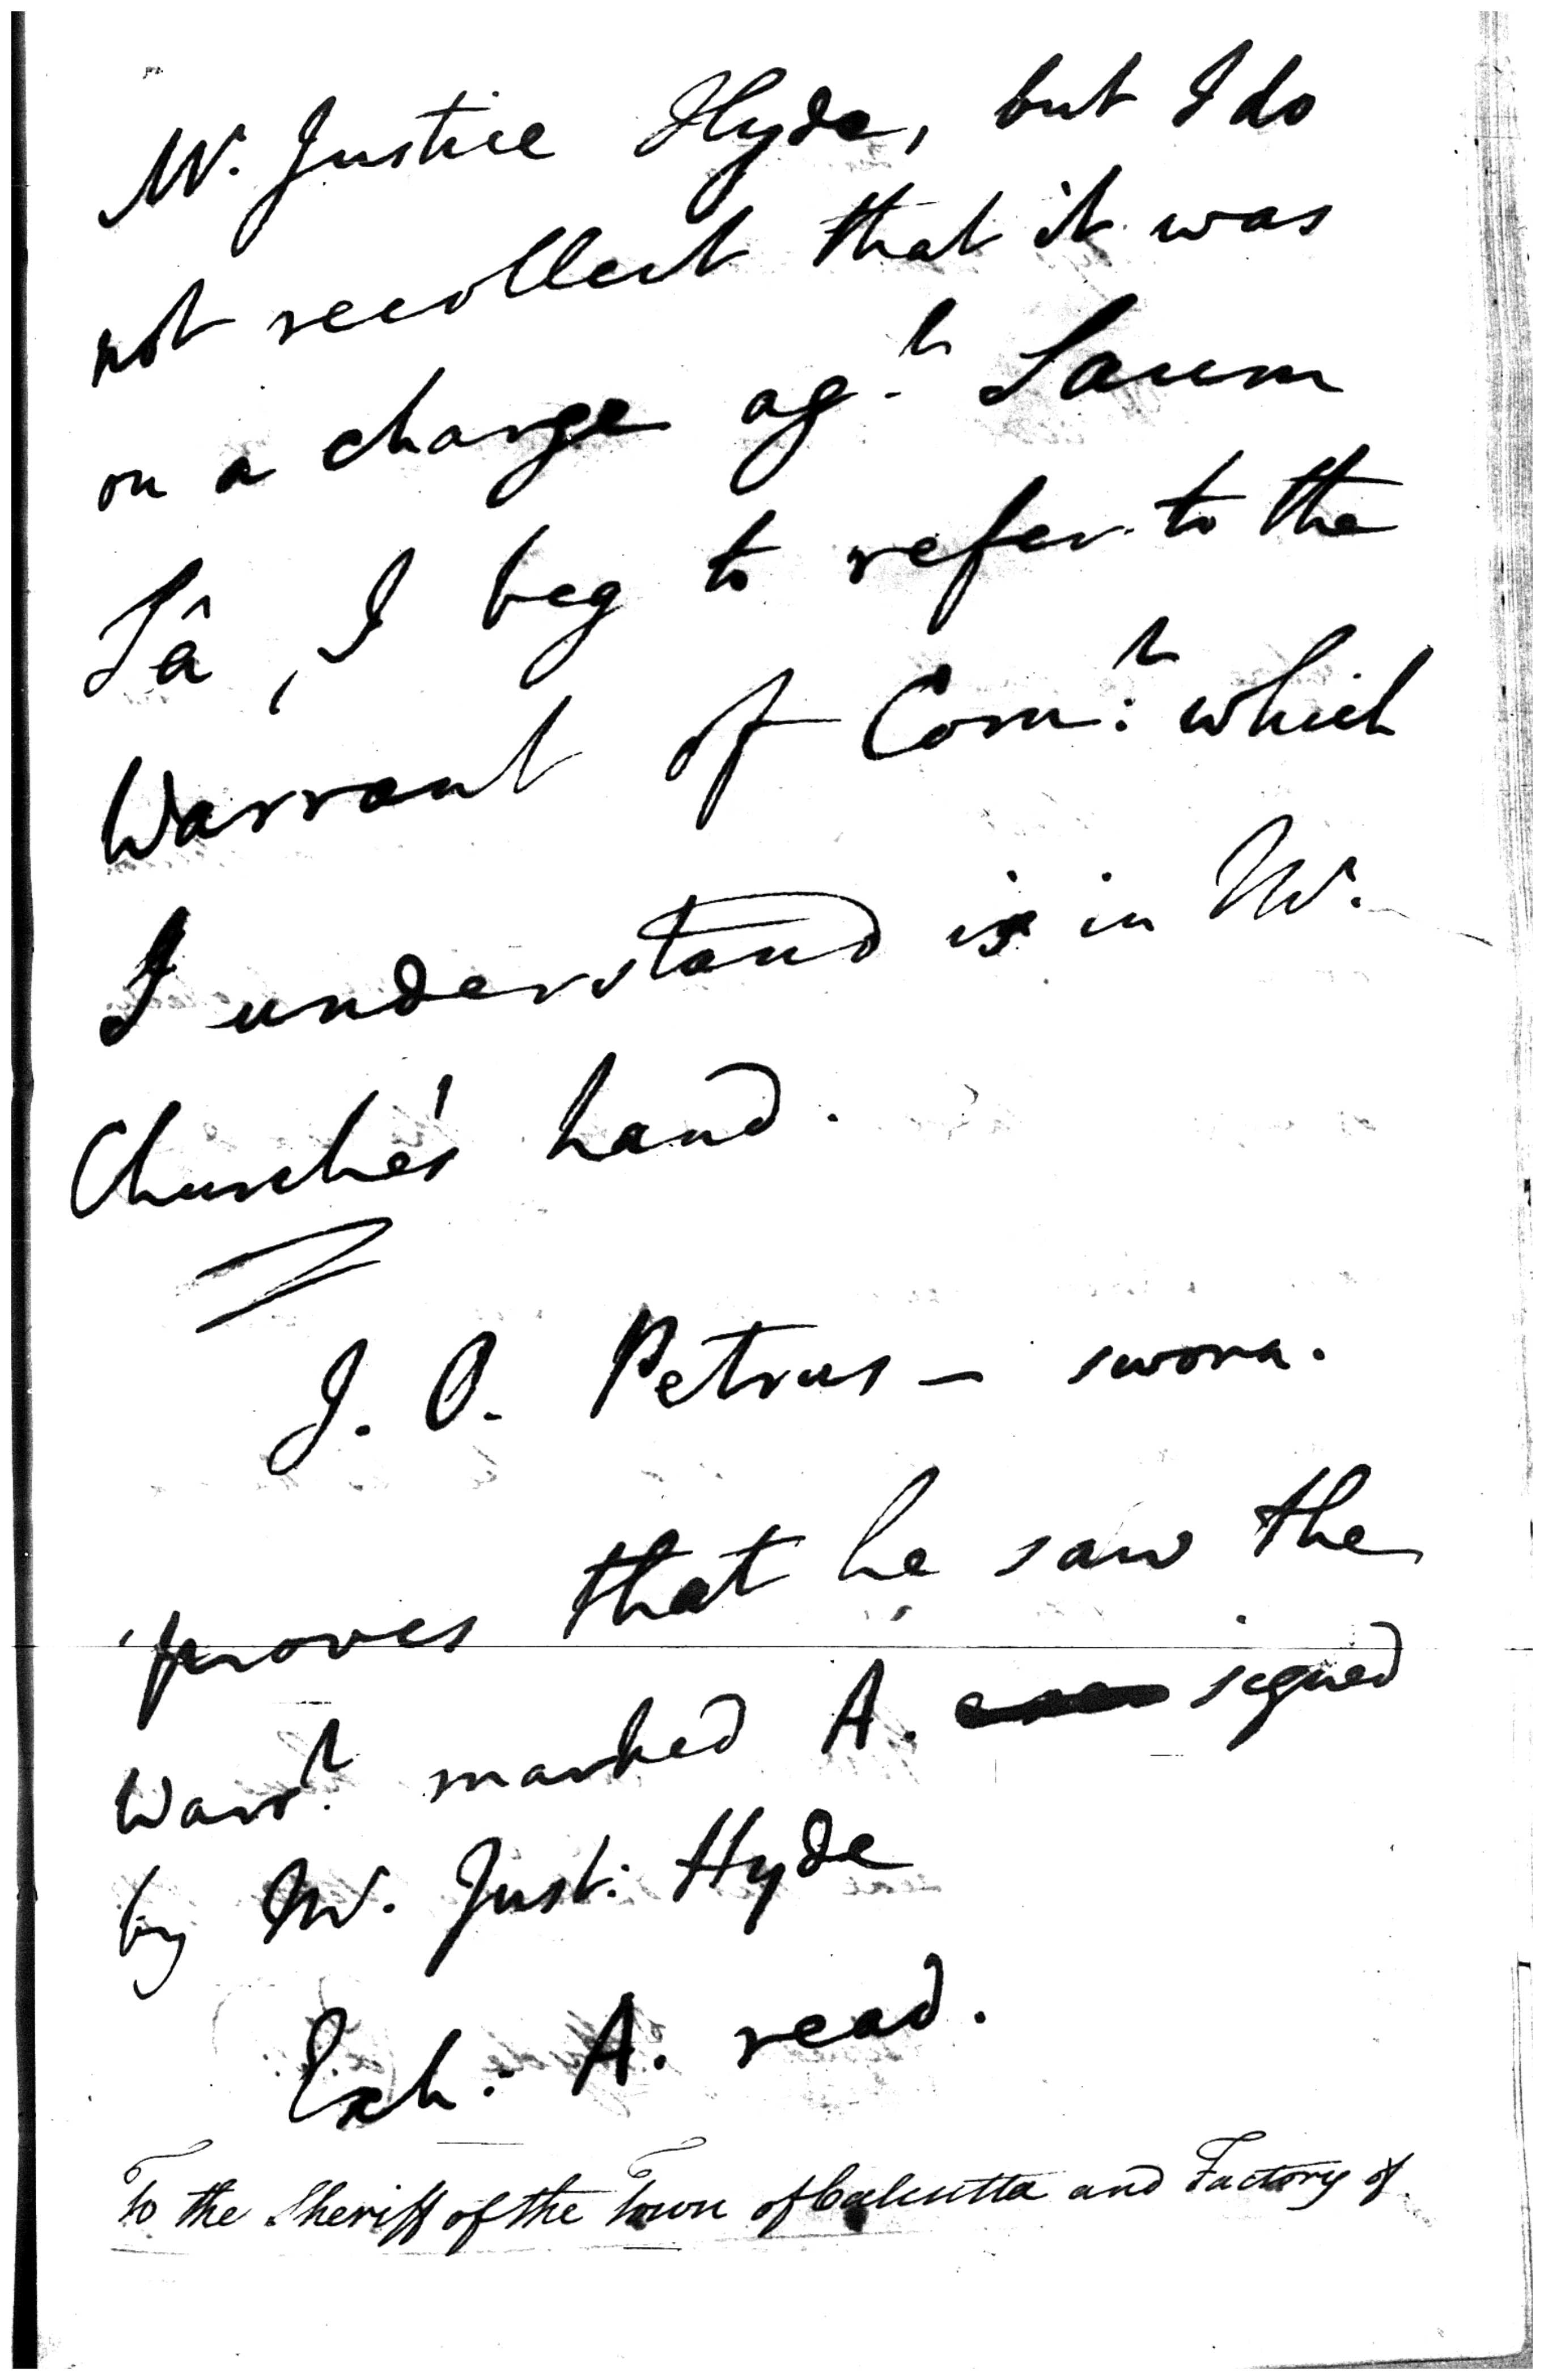 Mr. Justice Hyde, but I do
not recollect that it was
on a charge agt. Saum
Sâ, I beg to refer to the
Warrant of Comt. which
I understand is in Mr.
Churche's hand.
J. O. Petrus – sworn.
proves that he saw the
Warrt. marked A. signed
by Mr. Just: Hyde
Exh: A. read.
To the Sheriff of the Town of Calcutta and Factory of